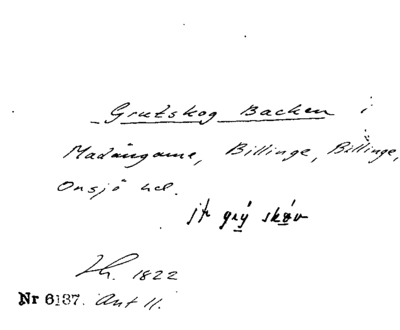 Grutskog Backen i
Madängarne, Billinge, Billinge,
Onsjö hd.
jfr grý skóv
Lh. 1822
Nr 6187. Ant 11.